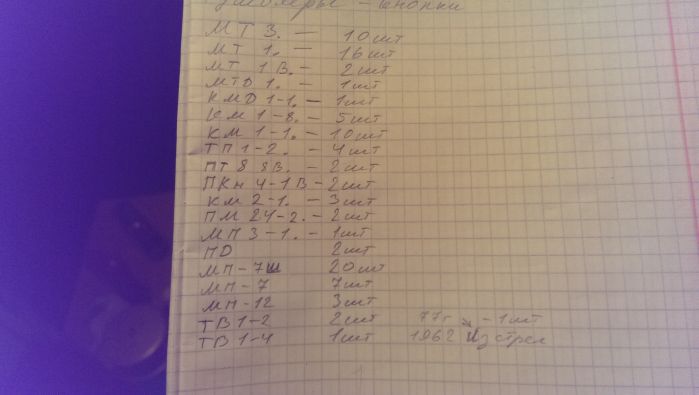 Тумблеры - кнопки
МТ 3. - 10 шт
МТ 1. - 16 шт
МТ 1 В. - 2 шт
МТД 1. - 1 шт
КМД 1-1. - 1 шт
КМ 1-8. - 5 шт
КМ 1-1. - 10 шт
ТП 1-2. - 4 шт
ПТ 8 8В. - 2 шт
ПКн 4-1В - 2 шт
КМ 2-1. - 3 шт
ПМ 24-2. - 2 шт
МП 3-1. - 1 шт
ПД 2 шт
МП-7Ш 20 шт
МП-7 7 шт
МП-12 3 шт
ТВ 1-2 2 шт 77г - 1 шт
ТВ 1-4 1 шт 1962